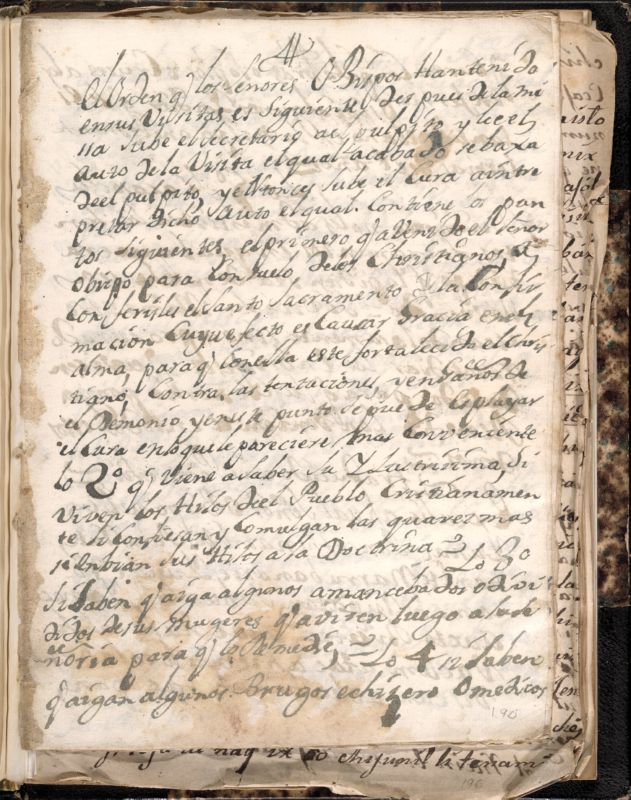 El Orden q̃ los Señores Obispos Han tenido
en sus Visitas es Siguiente Despues de la mi
ssa sube el secretario al pulpito y lee el
auto de la Visita el qual acabado se baxa
deel pulpito, y entonces sube el Cura a inter
pretar dicho Auto el qual. Contiene los pun
tos siguientes, el primero q̃ a Venido el señor
obispo para Consuelo de los Christianos, a
Conferirles el santo sacramento de la Confir
macion Cuyo efecto es Causar gracia en el
alma, para q̃ Con ella este fortalecido el Chris
tiano, Contra, las tentaciones, y engaños de
el Demonio, y en este punto se puede explayar
el Cura en lo que le pareciere, mas Conveniente
lo 2o q̃ Viene a saber su Ylustrisima, si
viven los Hijos deel Pueblo Cristianamen
te si Confiesan y Comulgan las quarezmas
si enbian sus Hijos a la Doctrina = Lo 3o
si saben q̃ aiga algunos amancebados o divi
didos de sus mugeres q̃ avisen luego a su se
ñoria para q̃ lo Remedie, = Lo 4 si saben
q̃ aigan algunos. Brugos echisero O medicos
190
chijunil li tenam
196